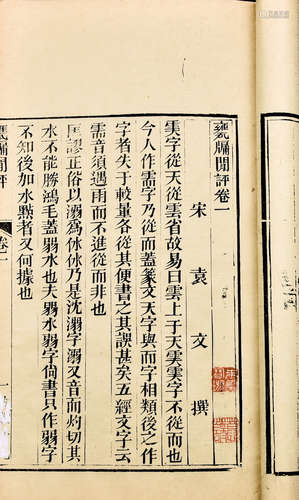 甕牖閒評卷一
宋 袁文 撰
𩂉字從天從雲省故易曰雲上于天𩂉𩂉字不從而也
今人作需字乃從而蓋篆文天字與而字相類後之作
字者失于較量各從其便書之其誤甚矣五經文字云
需音須遇雨而不進從而非也
匡謬正俗以溺為㲻㲻乃是沈溺字溺又音而灼切其
水不能勝鴻毛蓋弱水也夫弱水弱字尚書只作弱字
不知後加水㸃者又何據也
甕牖閒評 卷一 一